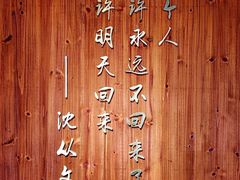 个人
许永远不回来了
许明天回来
——沈从文